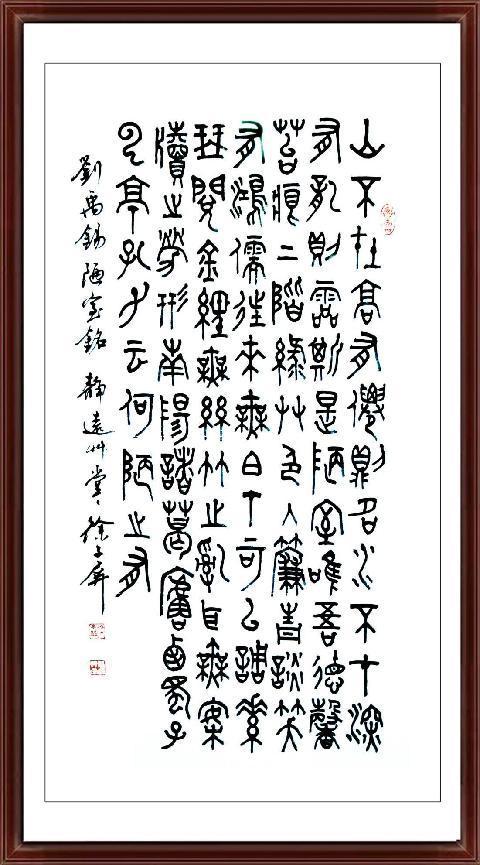 山不在高有僊則名水不在深
有龍則靈斯是陋室唯吾德馨
苔痕上階綠艸色入簾青談笑
有鴻儒往來無白丁可以調素
琴閱金經無絲竹之亂耳無案
牘之勞形南陽諸葛廬西蜀子
雲亭孔子云何陋之有
劉禹錫陋室銘 靜遠艸堂 徐